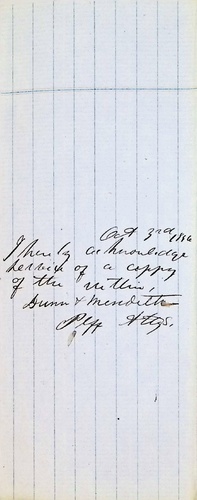 Oct 3rd 1886
I hereby acknowledge
service of a coppy
of the within,
Dunn & Meredith
Plff Attys.